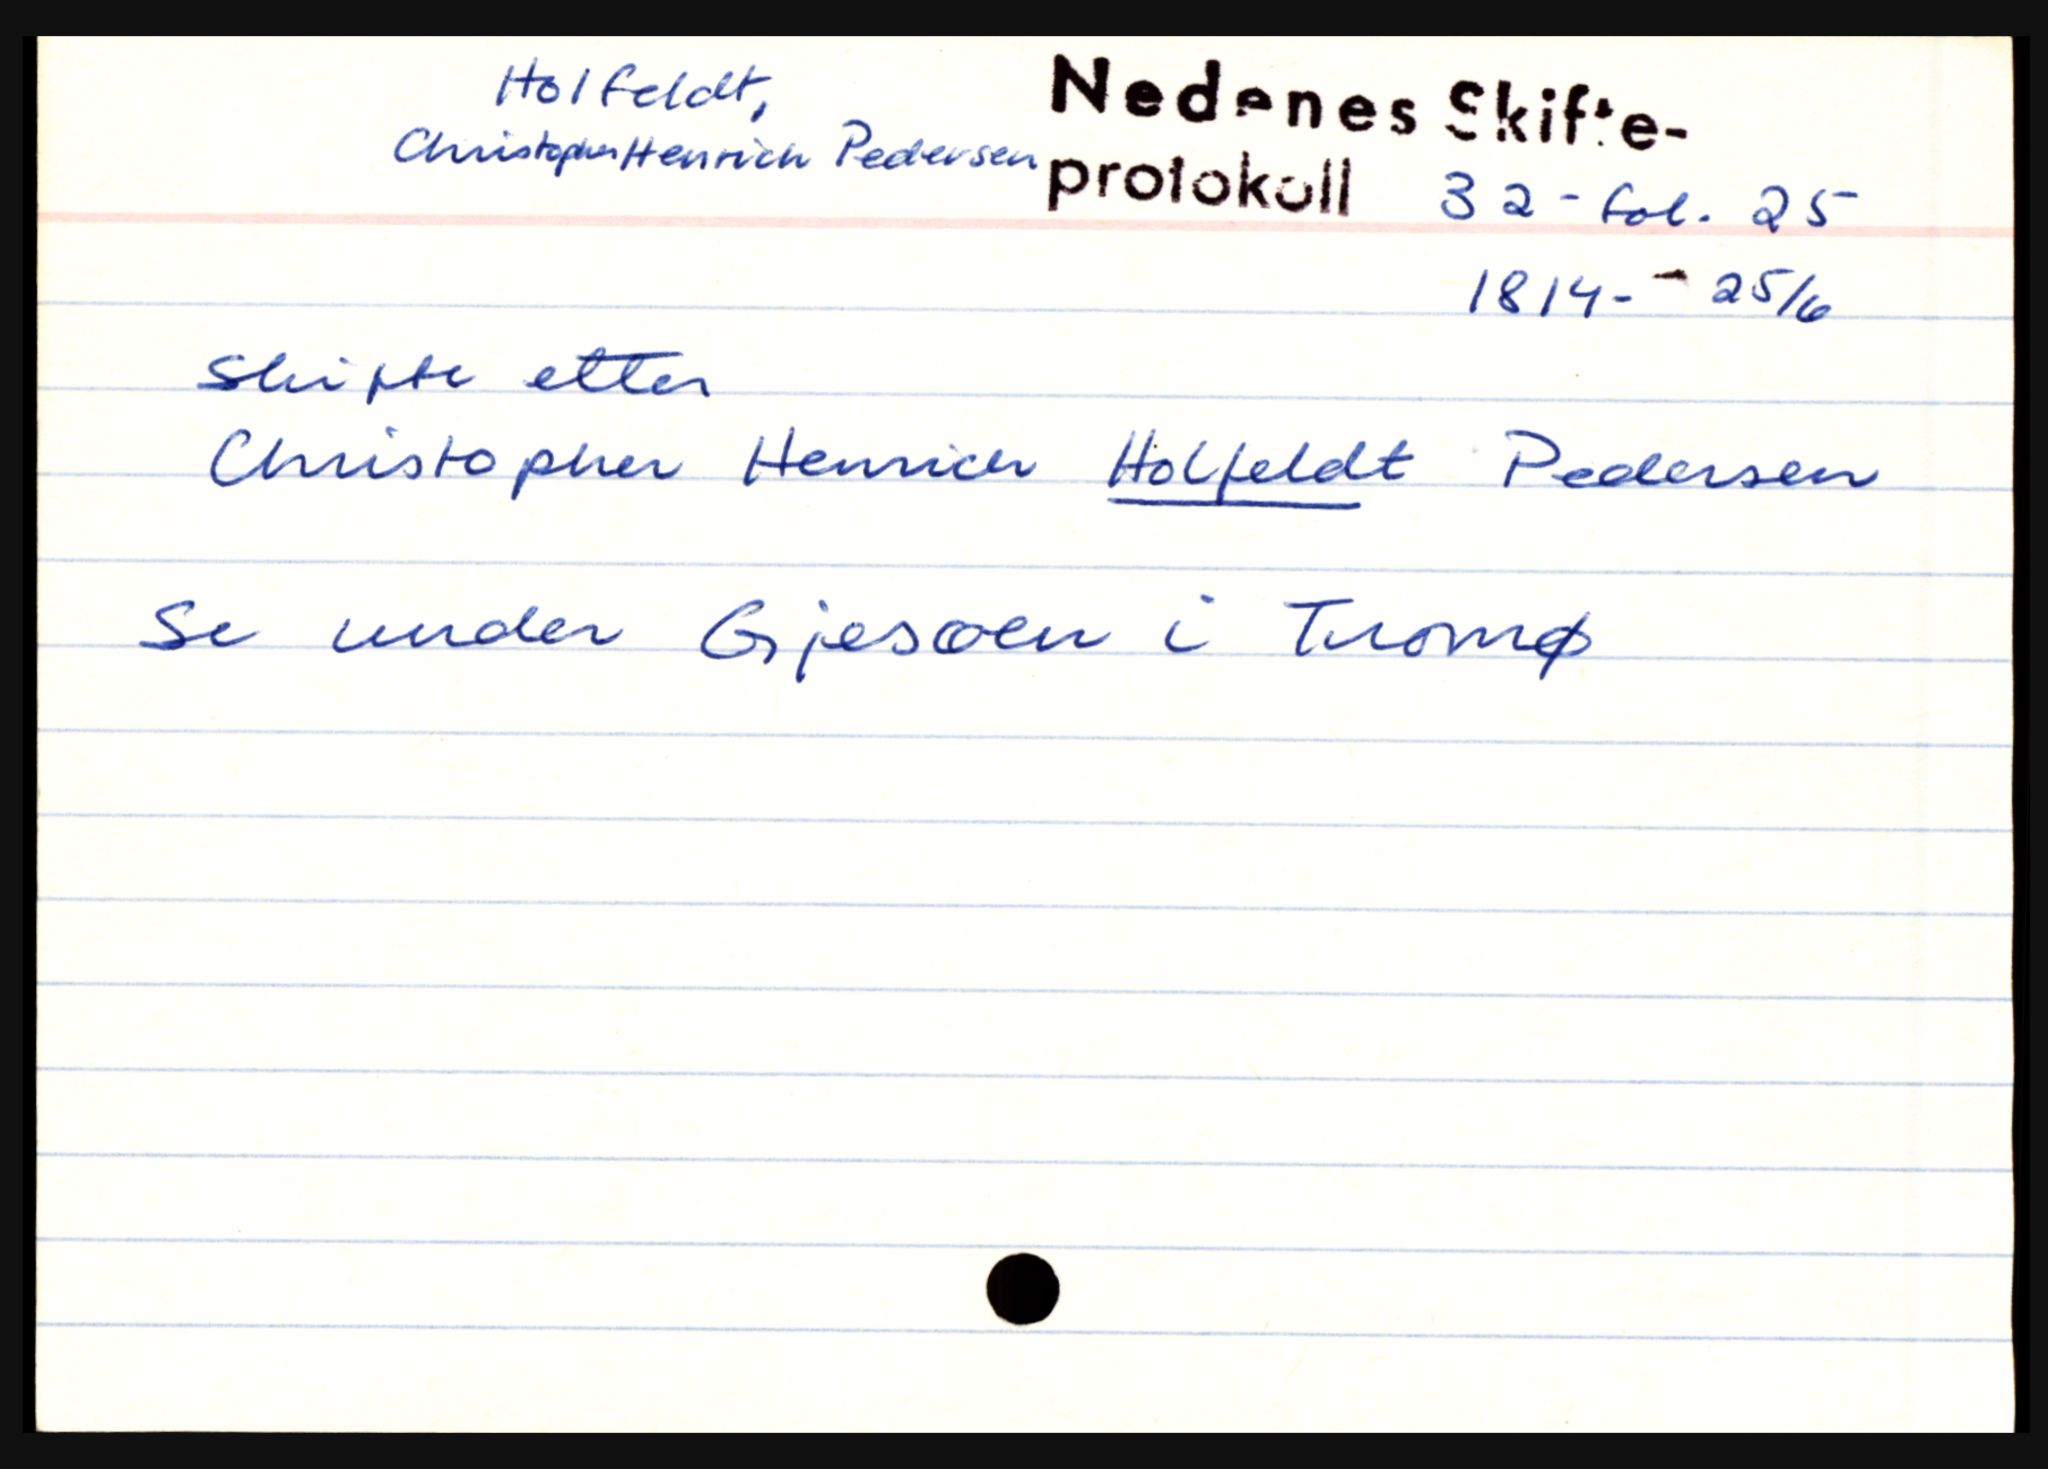 Holfeldt,
Christopher Henrich Pedersen
Nedenes Skifte-
protokoll 32 - fol. 25
1814 - - 25/6
Skifte etter
Christopher Henrich Holfeldt Pedersen
Se under Gjesøen i Tromø